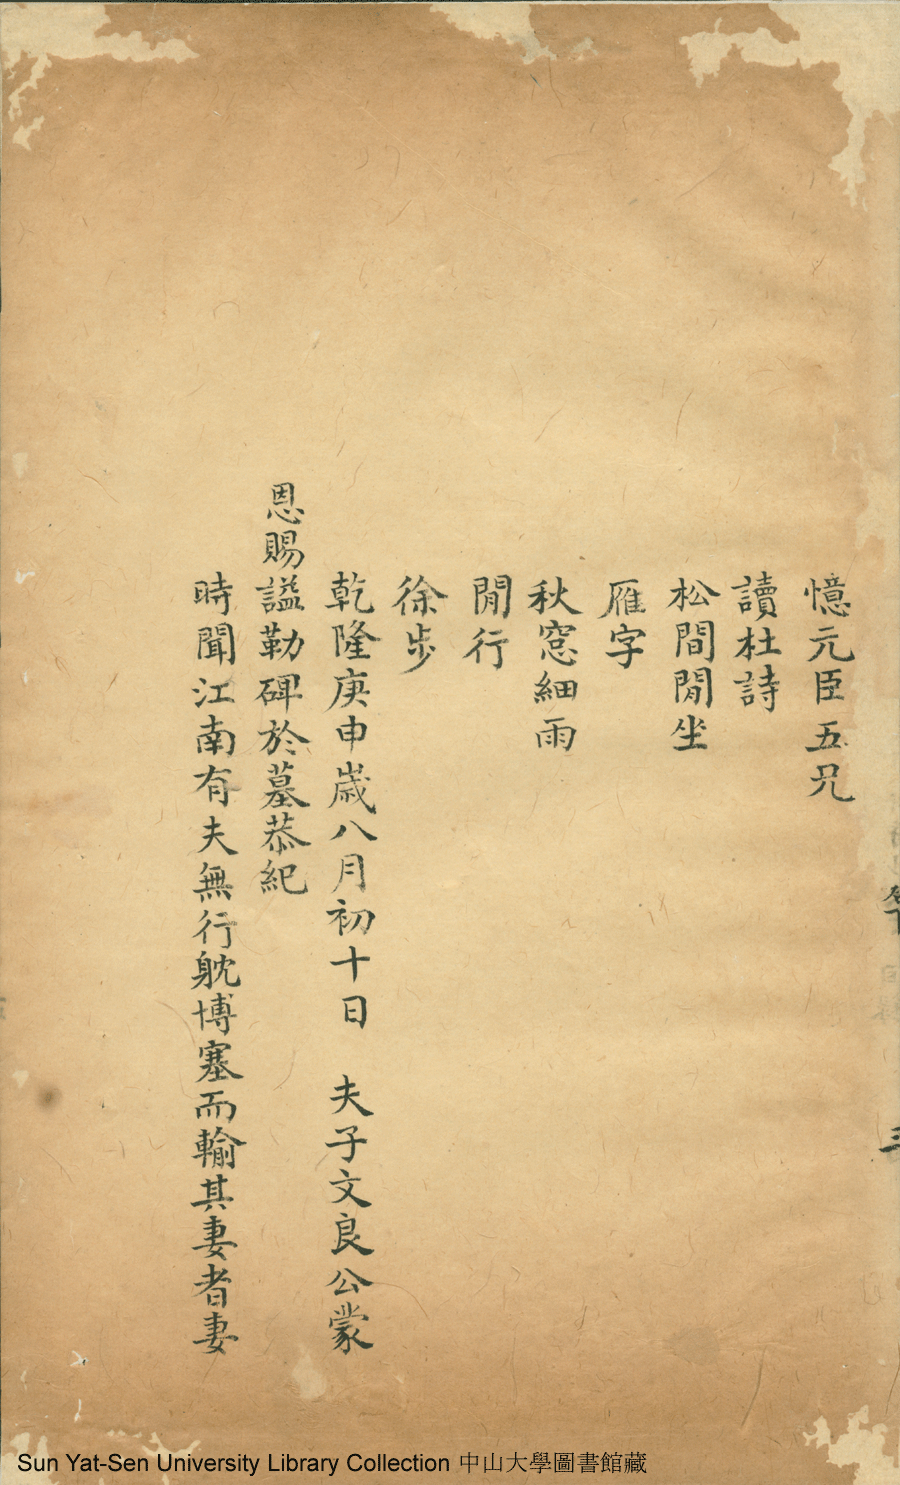 憶元臣五兄
讀杜詩
松間閒坐
雁字
秋窓細雨
閒行
徐步
乾隆庚申歲八月初十日　夫子文良公蒙
恩賜謚勒碑於墓恭紀
時聞江南有夫無行躭博塞而輸其妻者妻
Sun Yat-Sen University Library Collection 中山大學圖書館藏